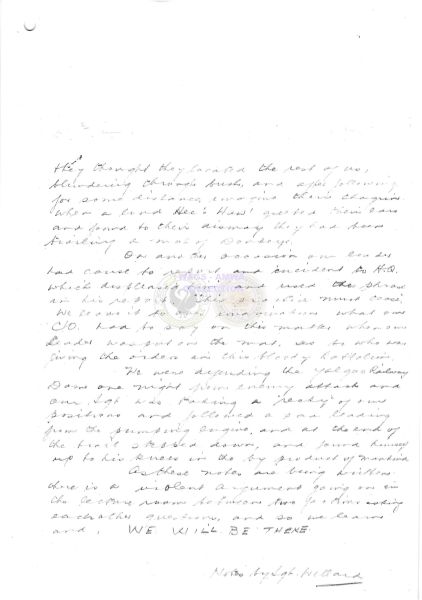 they thought they located the rest of us,
blundering through bush, and after following
for some distance, imagine their chagrin
when a loud Hee! Haw! greeted their ears
and found to their dismay they had been
trailing a mob of Donkeys.
On another occasion our leader
had cause to report an incident to H.Q.
which displeased him and used the phrase
in his report "This practice must cease"
We leave it to your imagination what our
C/O. had to say on this matter when our
Leader was put on the mat, as to who was
giving the orders in this bloody battalion.
We were defending the Railway
Dam one night from enemy attack and
our Sgt was taking a "recky" of our
positions and followed a pad leading
from the pumping engine, and at the end of
the trail stepped down, and found himself
up to his knees in the by product of mankind
As these notes are being written
there is a violent argument going on in
the lecture room between two asking
each other questions, and so we learn
and, WE WILL BE THERE.
Notes by Sgt.